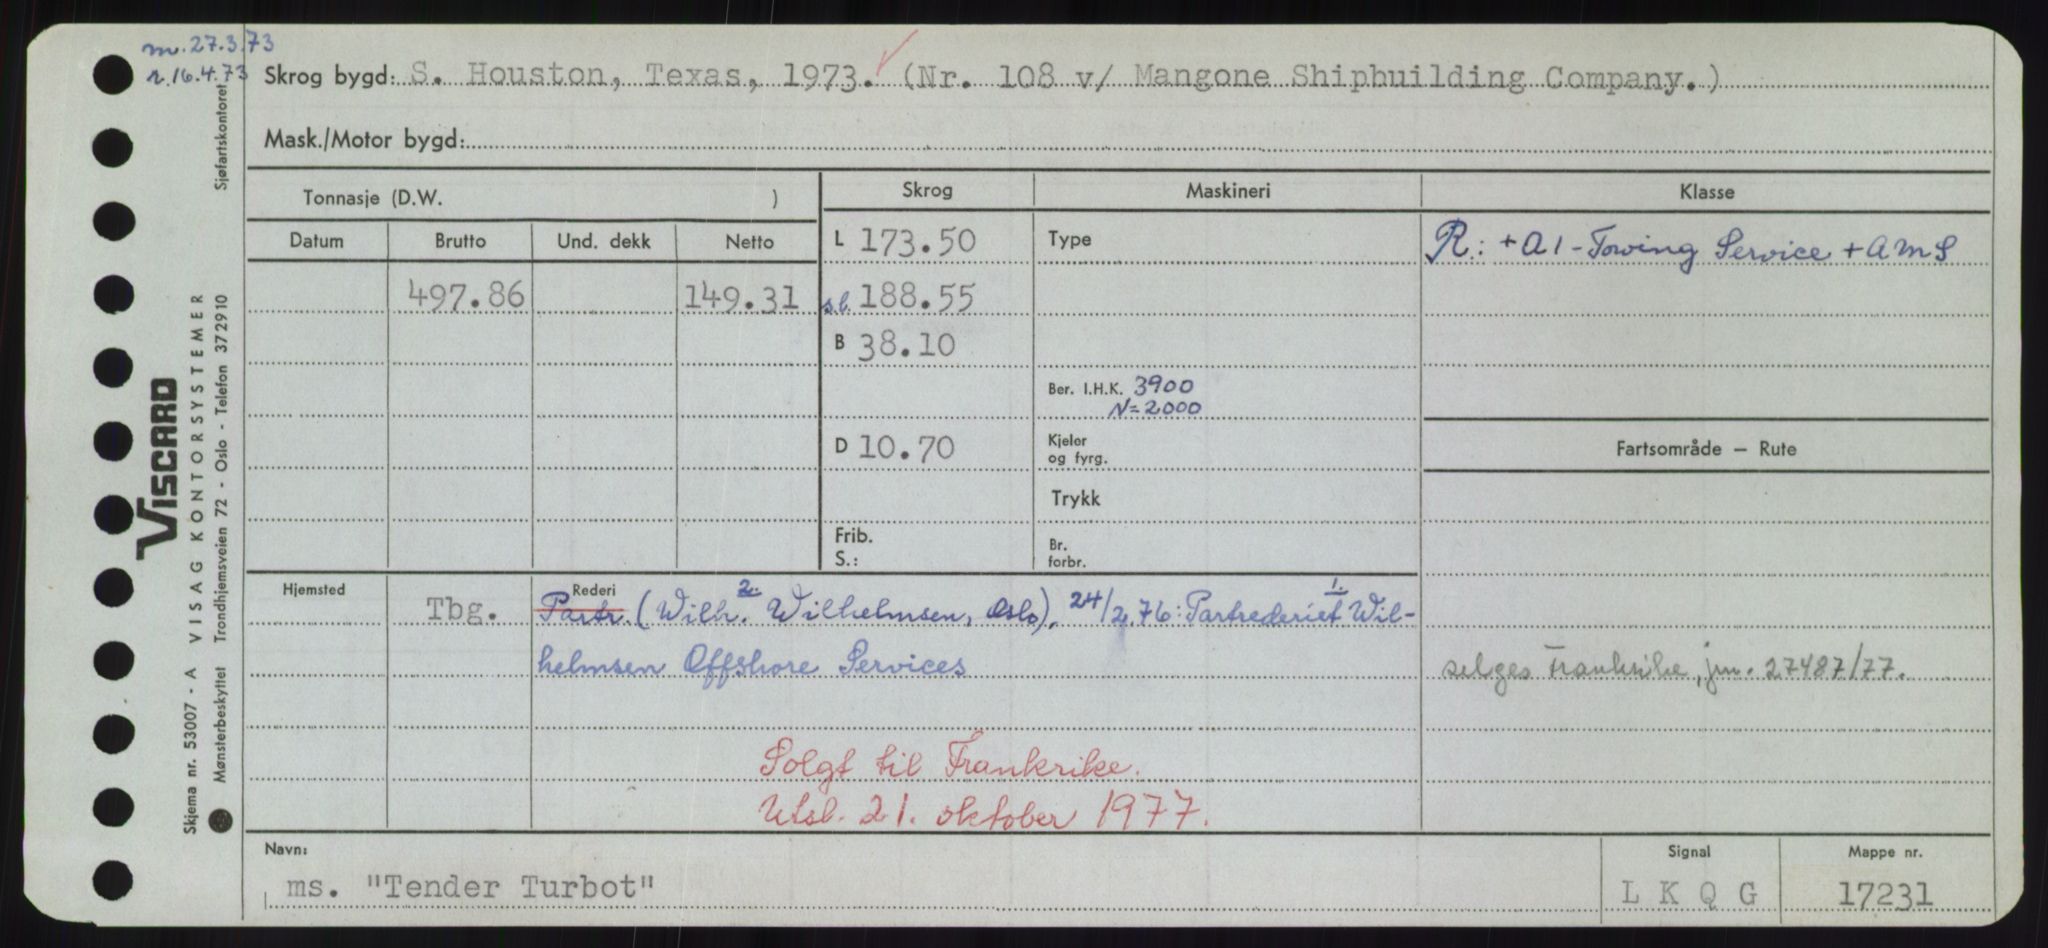 m. 27.3.73
r. 16.4.73
Skrog bygd: S. Houston, Texas, 1973. (Nr. 108 v/ Mangone Shipbuilding Company.)
Mask./Motor bygd:
Tonnasje (D.W. )
Skrog
Maskineri
Klasse
Datum
Brutto
Und. dekk
Netto
L 173.50
Type
R: +A1-Towing Service +AMS
497.86
149.31
s.l. 188.55
B 38.10
Ber. I.H.K. 3900
N=2000
D 10.70
Kjeler
og fyrg.
Fartsområde – Rute
Trykk
Frib.
S.:
Br.
forbr.
Hjemsted
Rederi
2.
1.
Tbg.
Partr. (Wilh. Wilhelmsen, Oslo), 24/2.76: Partrederiet Wil-
helmsen Offshore Services
selges Frankrike, jnr. 27487/77.
Solgt til Frankrike.
Utsl. 21. oktober 1977.
Navn:
ms. "Tender Turbot"
Signal
L K Q G
Mappe nr.
17231
VISCARD
Skjema nr. 53007 - A VISAG KONTORSYSTEMER
Mønsterbeskyttet Trondhjemsveien 72 - Oslo - Telefon 372910 Sjøfartskontoret